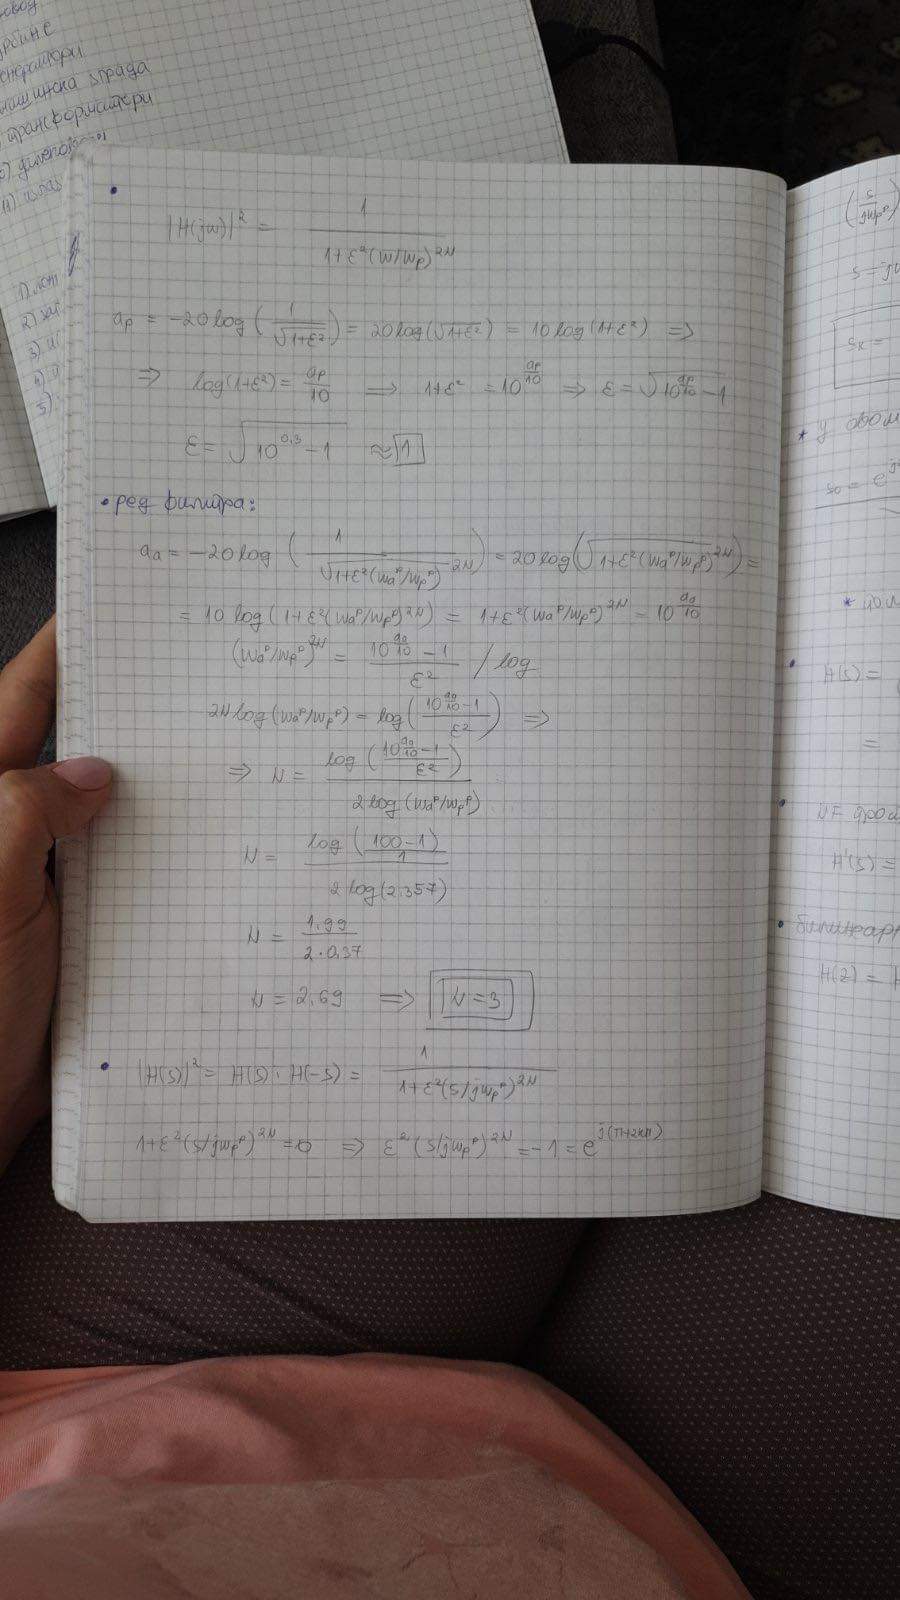 турбине
генератори
машинска зграда
трансформатори
•
|H(jw)|² = 1 / (1+ε²(w/wp)^2N)
ap = -20log(1/√(1+ε²)) = 20log(√(1+ε²)) = 10log(1+ε²) ⇒
⇒ log(1+ε²) = ap/10 ⇒ 1+ε² = 10^(ap/10) ⇒ ε = √(10^(ap/10) -1)
ε = √(10^0,3 -1) ≈ 1
• ред филтра:
aa = -20log(1/√(1+ε²(waᵖ/wpᵖ)^2N)) = 20log(√(1+ε²(waᵖ/wpᵖ)^2N)) =
= 10log(1+ε²(waᵖ/wpᵖ)^2N) = 1+ε²(waᵖ/wpᵖ)^2N = 10^(aa/10)
(waᵖ/wpᵖ)^2N = (10^(aa/10) -1)/ε² / log
2N log(waᵖ/wpᵖ) = log((10^(aa/10) -1)/ε²) ⇒
⇒ N = log((10^(aa/10) -1)/ε²) / 2log(waᵖ/wpᵖ)
N = log((100-1)/1) / 2log(2.357)
N = 1,99 / 2·0,37
N = 2,69 ⇒ N=3
• |H(s)|² = H(s)·H(-s) = 1 / (1+ε²(s/jwpᵖ)^2N)
1+ε²(s/jwpᵖ)^2N = 0 ⇒ ε²(s/jwpᵖ)^2N = -1 = e^j(π+2kπ)
(s/jwpᵖ)
* У овом
s₀ = e
H(s) =
=
H'(s) =
• билинеарн
H(z) = H